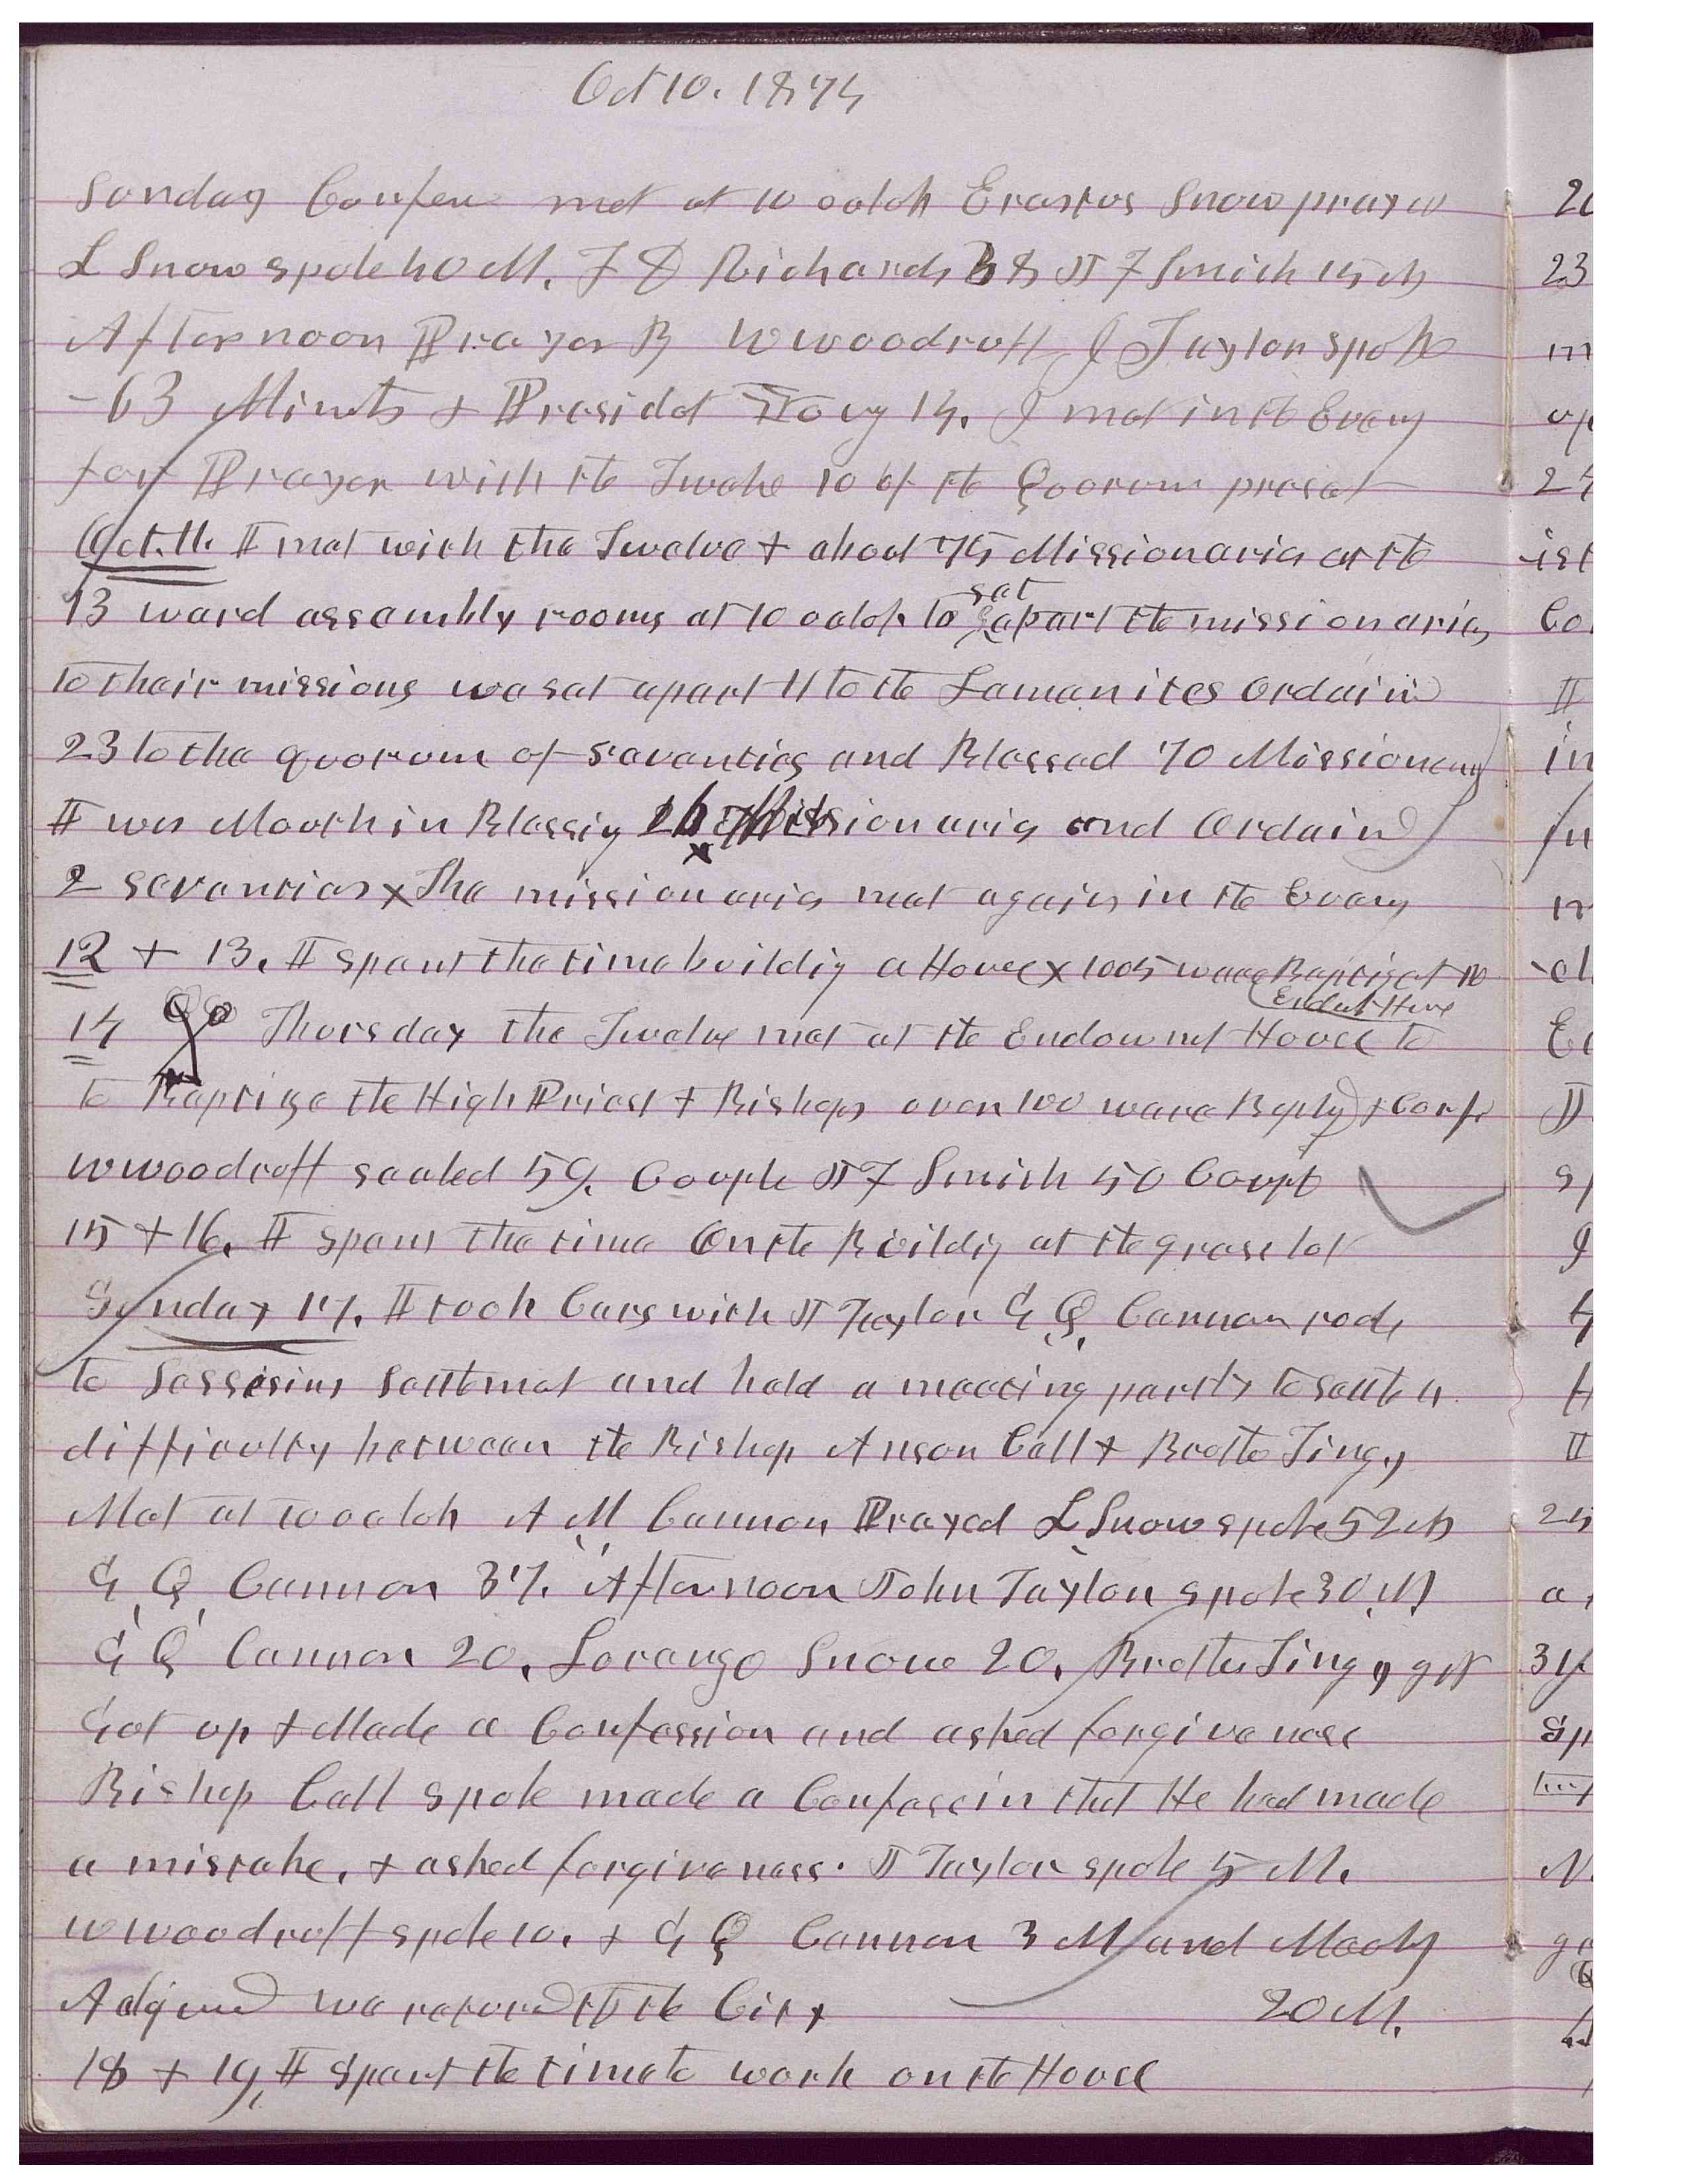 Oct 10. 1875
Sunday Confern met at 10 oclok Erastus Snow prayed
L Snow spoke 40 M. F D Richards 38 J F Smith 15 M
Afternoon Prayer By W Woodruff J Taylor spoke
63 Minuts & Presidet Young 14. I met in the Evening
for Prayer with the Twelve 10 of the Quorum preset
Oct. 11. I met with the Twelve & about 75 Missionaries at the
13 ward assembly rooms at 10 oclok to set apart the missionaries
to their missions we set apart 11 to the Lamanites Ordained
23 to the quorum of seventies and Blessed 70 Missionary
I was Mouth in Blessig Missionaries and Ordained
2 seventies x The missionaries met again in the Eveng
12 & 13. I spent the time buildig a House x 1005 were Baptized at the
Endmt House
14 Thursday the Twelve met at the Endowmet House to
to Baptize the High Priest & Bishops over 100 were Baptized & Confr
W Woodruff sealed 59. Couple J F Smith 50 Coupl
15 & 16. I spent the time On the Buildig at the grase lot
Sunday 17. I took Cars with J Taylor G Q. Cannon rode
to Sessisins settlemet and held a meeting partly to settle a
difficulty between the Bishop Anson Call & Brother Tingy
Met at 10 oclok A M Cannon Prayed L Snow spoke 52 M
G Q Cannon 37. Afternoon John Taylor spoke 30 M
G Q Cannon 20. Lorenzo Snow 20. Brother Tingy got
Got up & Made a Confession and asked forgiveness
Bishop Call spoke made a Confessin that He had made
a mistake. & asked forgiveness. J Taylor spoke 5 M.
W Woodruff spoke 10. & G Q Cannon 3 M and Meetg
Adjournd we returned to the City 20 M.
18 & 19, I spent the time to work on the House